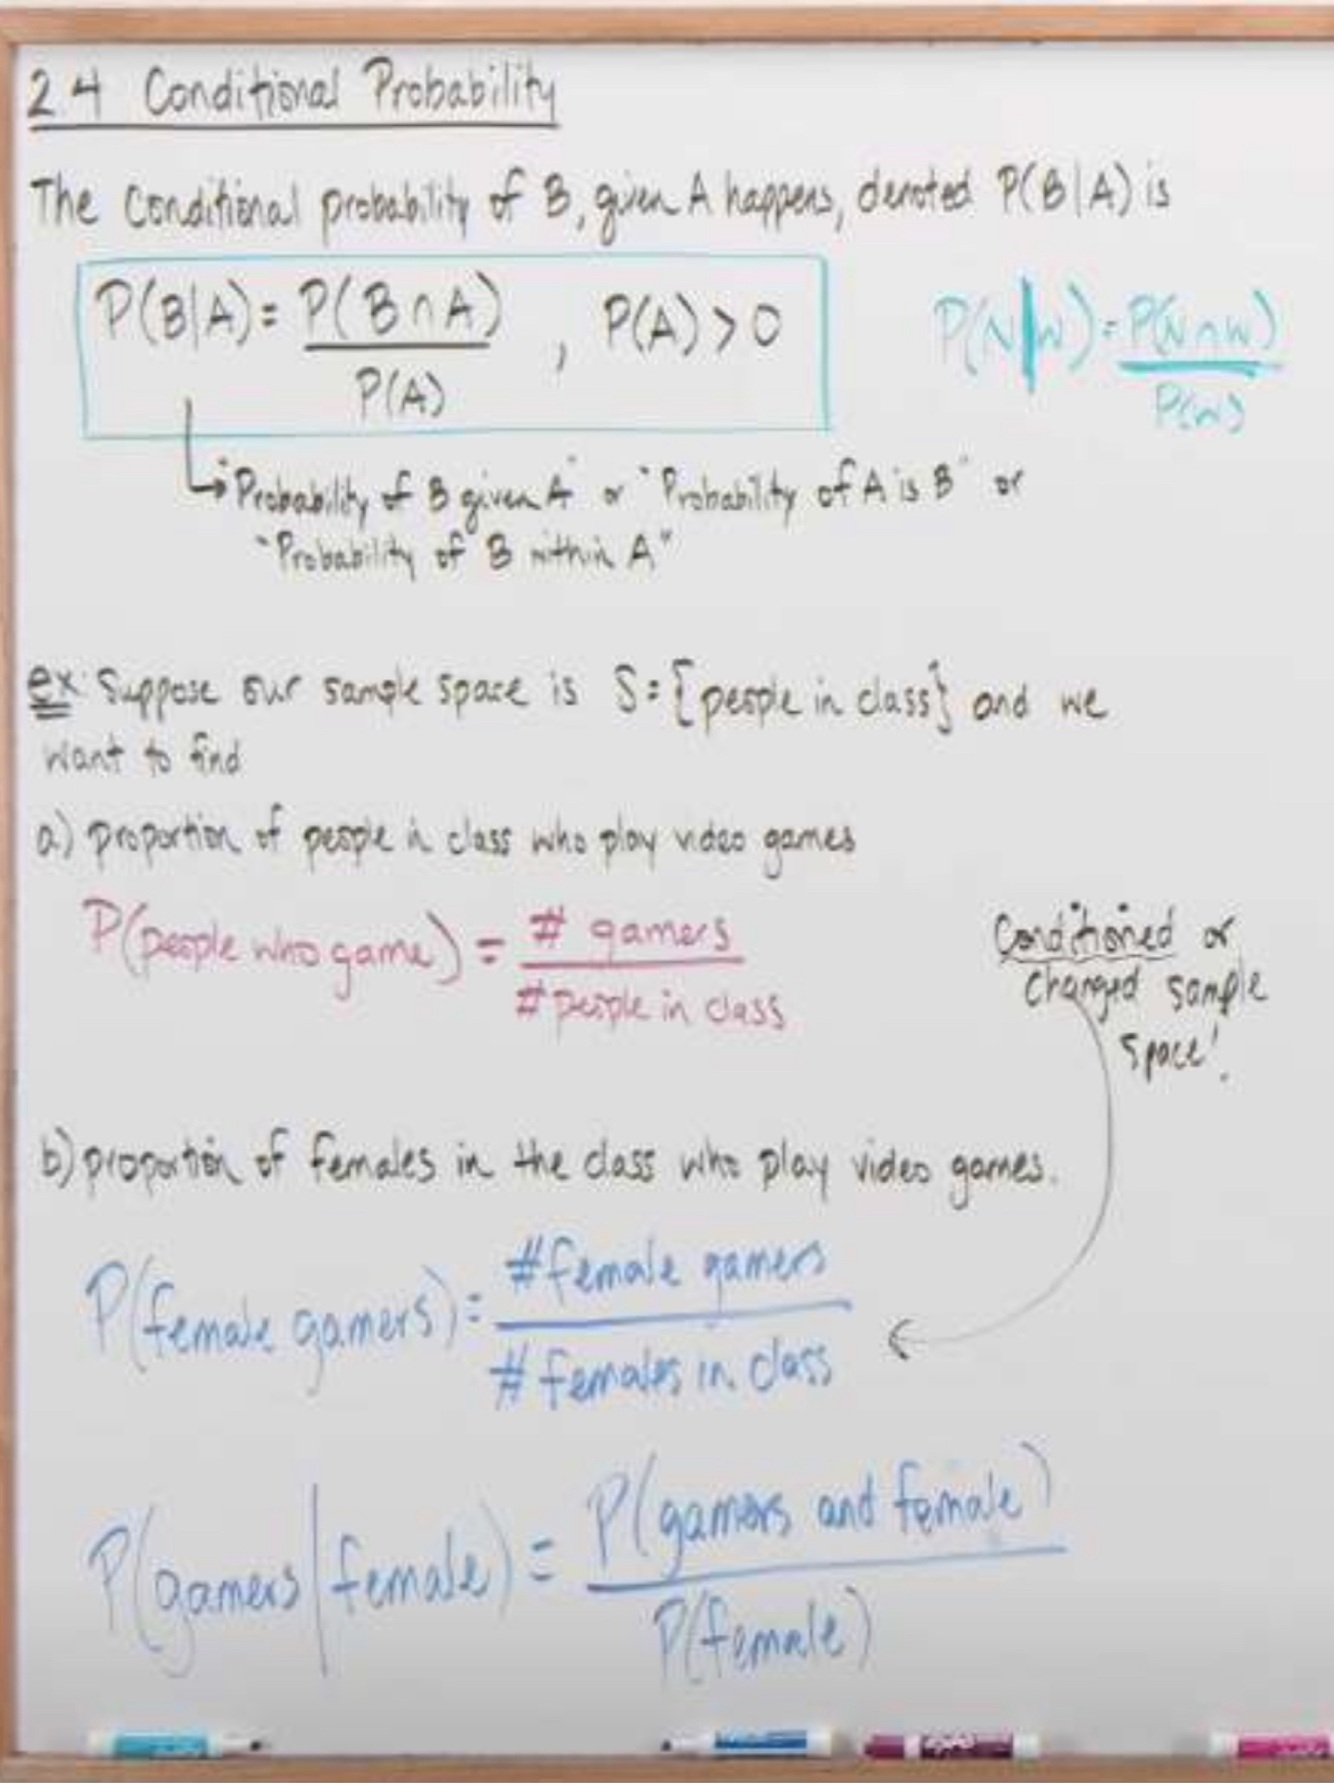 2.4 Conditional Probability
The Conditional probability of B, given A happens, denoted P(B|A) is
P(B|A) = P(B∩A) / P(A) , P(A) > 0
P(N|W) = P(N∩W) / P(W)
"Probability of B given A" or "Probability of A is B" or
"Probability of B within A"
ex: Suppose our sample space is S = {people in class} and we
want to find
a.) proportion of people in class who play video games
P(people who game) = # gamers / # people in class
Conditioned or
changed sample
space!
b) proportion of females in the class who play video games.
P(female gamers) = # female gamers / # females in class
P(gamers|female) = P(gamers and female) / P(female)